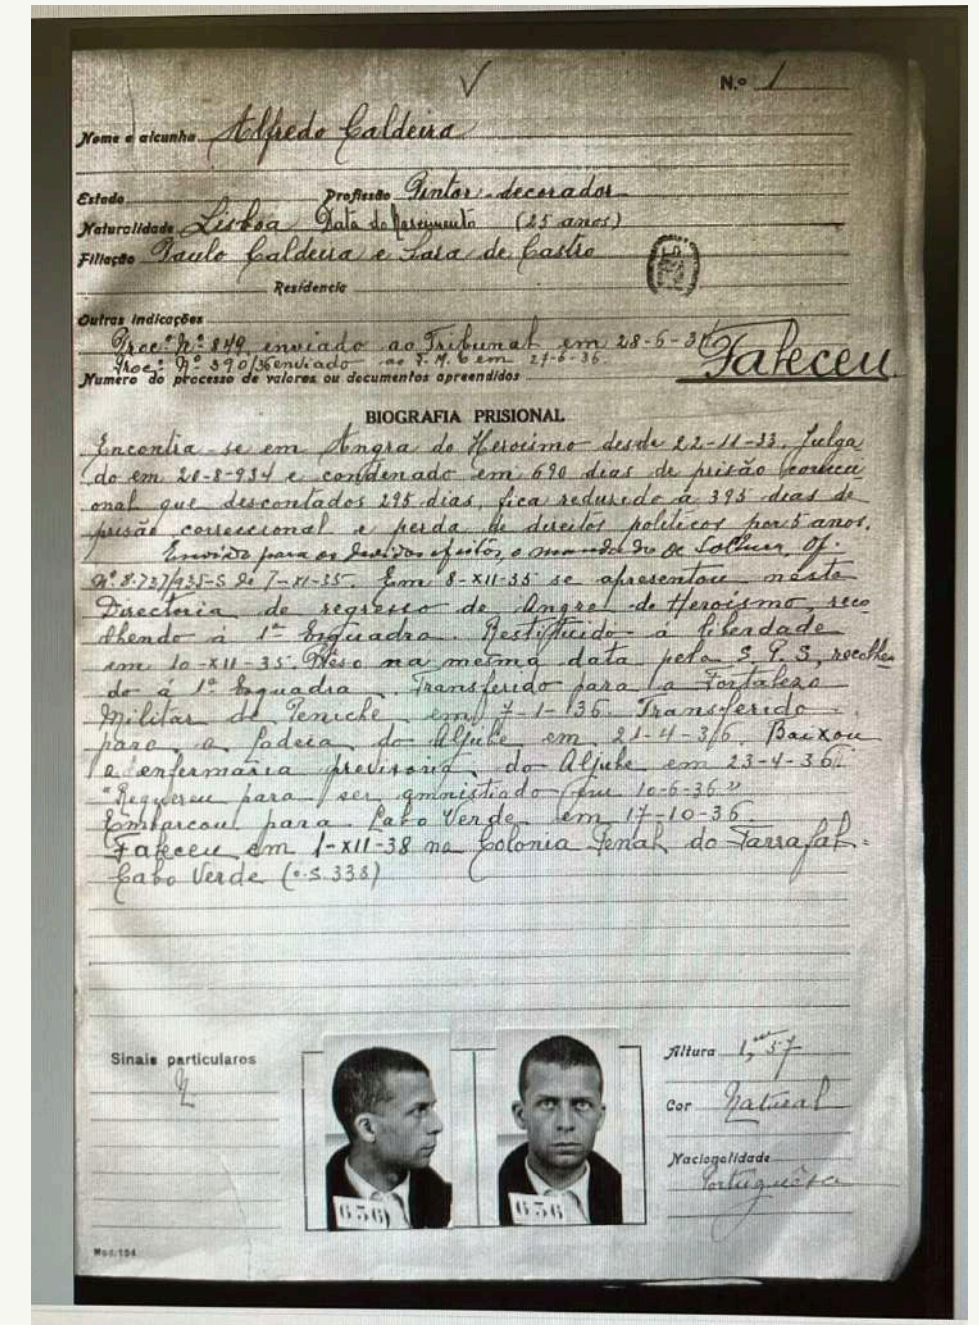 N.º 1
Nome e alcunha Alfredo Caldeira
Estado Profissão Pintor-decorador
Naturalidade Lisboa Data do Nascimento (25 anos)
Filiação Paulo Caldeira e Sara de Castro
Residencia
Outras indicações
Proc.º N.º 849, enviado ao Tribunal em 28-6-34
Proc.º Nº 390/36 enviado ao T. M. E em 27-6-36.
Faleceu
Numero do processo de valores ou documentos apreendidos
BIOGRAFIA PRISIONAL
Encontra-se em Angra do Heroismo desde 22-11-33. Julga
do em 20-8-934 e condenado em 690 dias de prisão correcci
onal que descontados 295 dias, fica reduzido a 395 dias de
prisão correccional e perda de direitos politicos por 5 anos.
Enviado para os devidos efeitos, o mandado de Soltura, Of.
Nº 8.737/935-S de 7-XI-35. Em 8-XII-35 se apresentou nesta
Directoria de regresso de Angra do Heroismo, reco
lhendo á 1ª Esquadra. Restituido á liberdade
em 10-XII-35. Preso na mesma data pela S. P. S, recolhen
do á 1ª Esquadra. Transferido para a Fortaleza
Militar de Peniche em 7-1-136. Transferido
para a Cadeia do Aljube em 21-4-36. Baixou
a enfermaria do Aljube em 23-4-36.
"Requereu para ser amnistiado em 10-6-36"
Embarcou para Cabo Verde em 17-10-36.
Faleceu em 1-XII-38 na Colonia Penal do Tarrafal-
Cabo Verde (O.S. 338)
Sinais particulares
Altura 1,m57
Cor Natural
Nacionalidade
Portuguêsa
636
636
Mod. 154